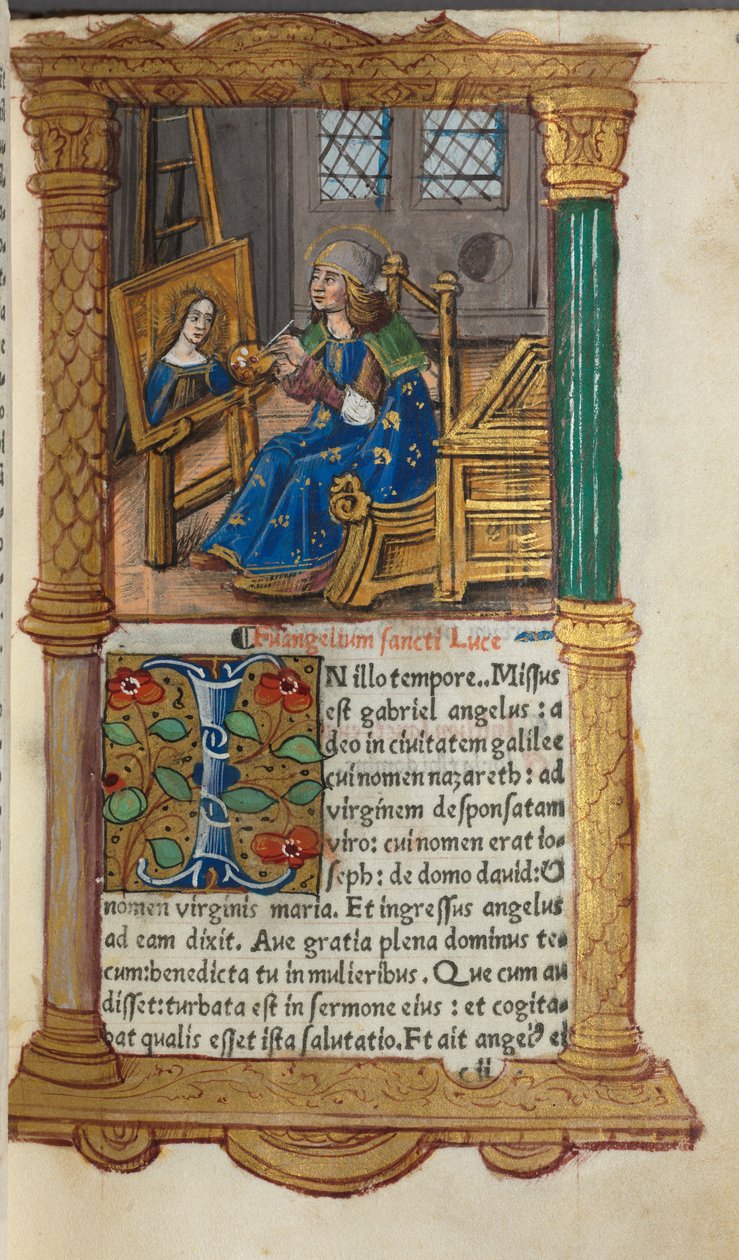 Euangelium sancti Luce
IN illo tempore.. Missus
est gabriel angelus : a
deo in ciuitatem galilee
cui nomen nazareth : ad
virginem desponsatam
viro: cui nomen erat io-
seph: de domo dauid:&
nomen virginis maria. Et ingressus angelus
ad eam dixit. Aue gratia plena dominus te-
cum:benedicta tu in mulieribus. Que cum au
disset:turbata est in sermone eius : et cogita-
bat qualis esset ista salutatio. Et ait angelꝰ ei